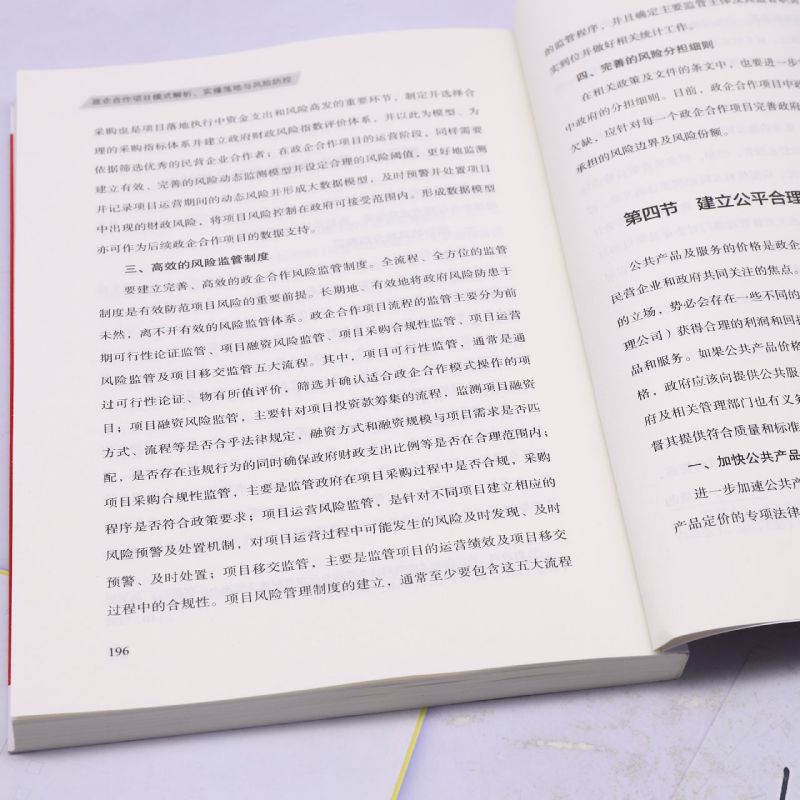 政企合作项目模式解析、实操落地与风险防控
采购也是项目落地执行中资金支出和风险高发的重要环节，制定并选择合
理的采购指标体系并建立政府财政风险指数评价体系，并以此为模型、为
依据筛选优秀的民营企业合作者；在政企合作项目的运营阶段，同样需要
建立有效、完善的风险动态监测模型并设定合理的风险阈值，更好地监测
并记录项目运营期间的动态风险并形成大数据模型，及时预警并处置项目
中出现的财政风险，将项目风险控制在政府可接受范围内。形成数据模型
亦可作为后续政企合作项目的数据支持。
三、高效的风险监管制度
要建立完善、高效的政企合作风险监管制度。全流程、全方位的监管
制度是有效防范项目风险的重要前提。长期地、有效地将政府风险防患于
未然，离不开有效的风险监管体系。政企合作项目流程的监管主要分为前
期可行性论证监管、项目融资风险监管、项目采购合规性监管、项目运营
风险监管及项目移交监管五大流程。其中，项目可行性监管，通常是通
过可行性论证、物有所值评价，筛选并确认适合政企合作模式操作的项
目；项目融资风险监管，主要针对项目投资款筹集的流程，监测项目融资
方式、流程等是否合乎法律规定，融资方式和融资规模与项目需求是否匹
配，是否存在违规行为的同时确保政府财政支出比例等是否在合理范围内；
项目采购合规性监管，主要是监管政府在项目采购过程中是否合规，采购
程序是否符合政策要求；项目运营风险监管，是针对不同项目建立相应的
风险预警及处置机制，对项目运营过程中可能发生的风险及时发现、及时
预警、及时处置；项目移交监管，主要是监管项目的运营绩效及项目移交
过程中的合规性。项目风险管理制度的建立，通常至少要包含这五大流程
196
的监管程序，并且确定主要监管主体及
实到位并做好相关统计工作。
四、完善的风险分担细则
在相关政策及文件的条文中，也要进一步
中政府的分担细则。目前，政企合作项目中政
欠缺，应针对每一个政企合作项目完善政府
承担的风险边界及风险份额。
第四节 建立公平合理
公共产品及服务的价格是政企
民营企业和政府共同关注的焦点。
的立场，势必会存在一些不同的
理公司）获得合理的利润和回
品和服务。如果公共产品价格
格，政府应该向提供公共服
府及相关管理部门也有义务
督其提供符合质量和标准
一、加快公共产品
进一步加速公共产
产品定价的专项法律